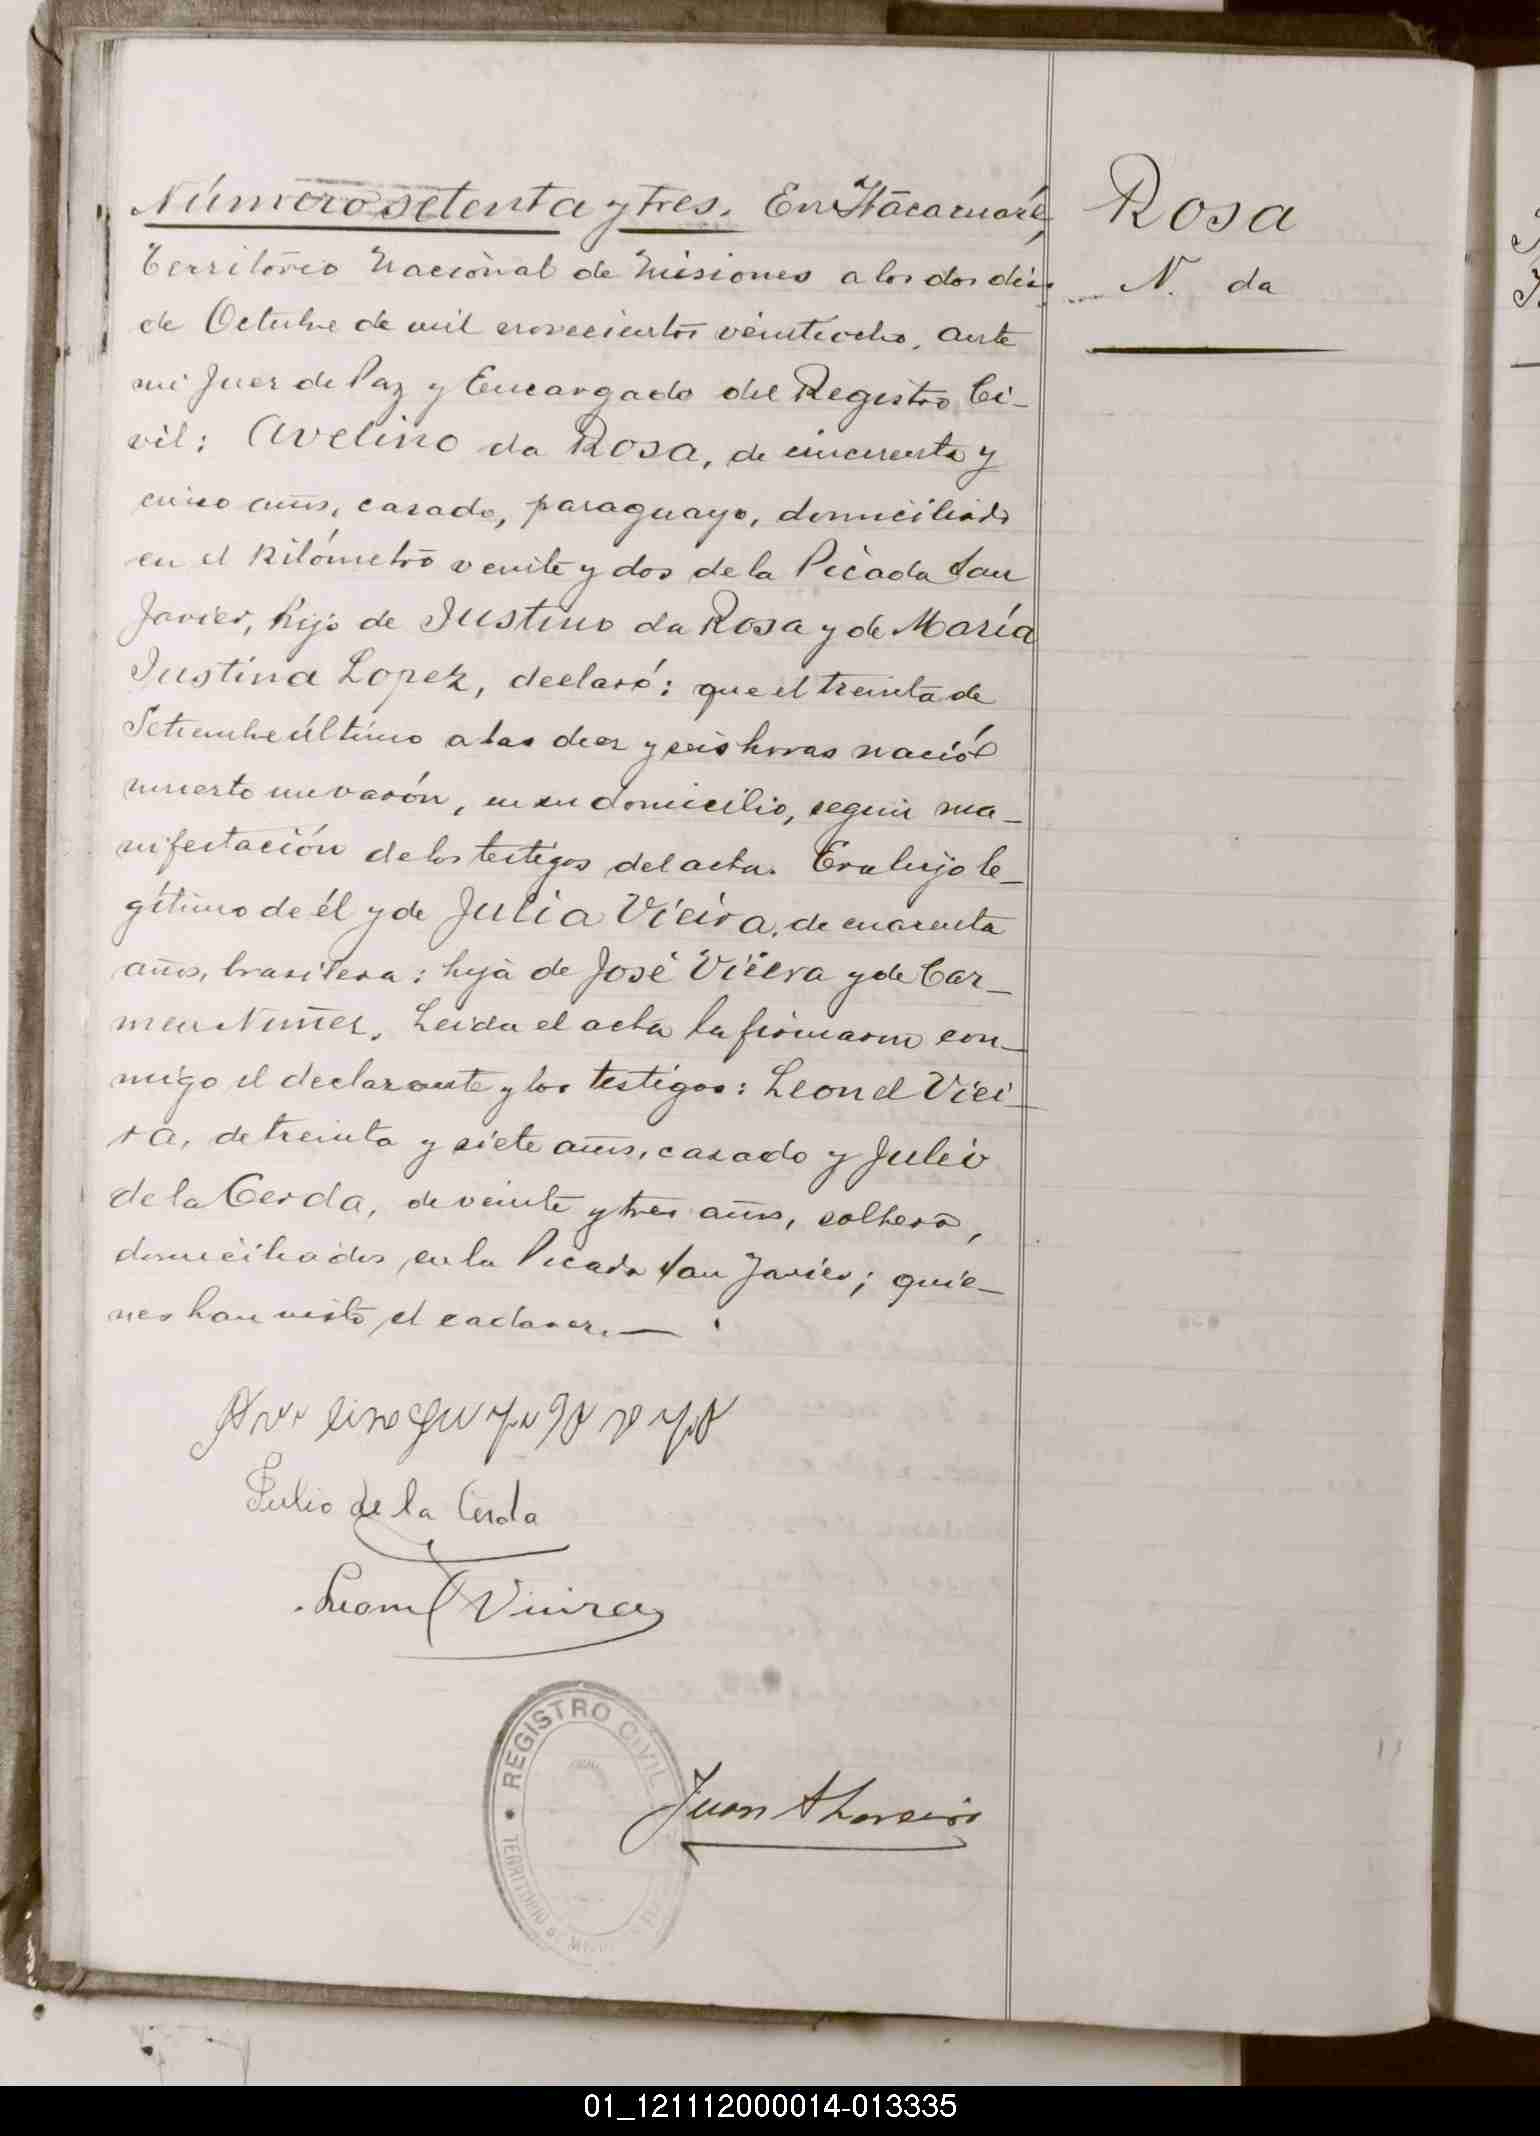 Número setenta y tres. En Itacaruaré,
Territorio Nacional de Misiones a los dos días
de Octubre de mil novecientos veintiocho, ante
mi Juez de Paz y Encargado del Registro Ci-
vil: Avelino da Rosa, de cincuenta y
cinco años, casado, paraguayo, domiciliado
en el kilómetro veinte y dos de la Picada San
Javier, hijo de Justino da Rosa y de María
Justina Lopez, declaró: que el treinta de
Setiembre último a las diez y seis horas nació
muerto un varón, en su domicilio, según ma-
nifestación de los testigos del acta. Era hijo le-
gítimo de él y de Julia Vieira, de cuarenta
años, brasilera; hija de José Vieira y de Car-
men Nuñez. Leida el acta la firmaron con-
migo el declarante y los testigos: Leonel Viei-
ra, de treinta y siete años, casado y Julio
de la Cerda, de veinte y tres años, soltero,
domiciliados en la Picada San Javier; quie-
nes han visto el cadaver.—
Julio de la Cerda
Leonel Vieira
REGISTRO CIVIL
TERRITORIO
Juan
Rosa
N. da
01_121112000014-013335